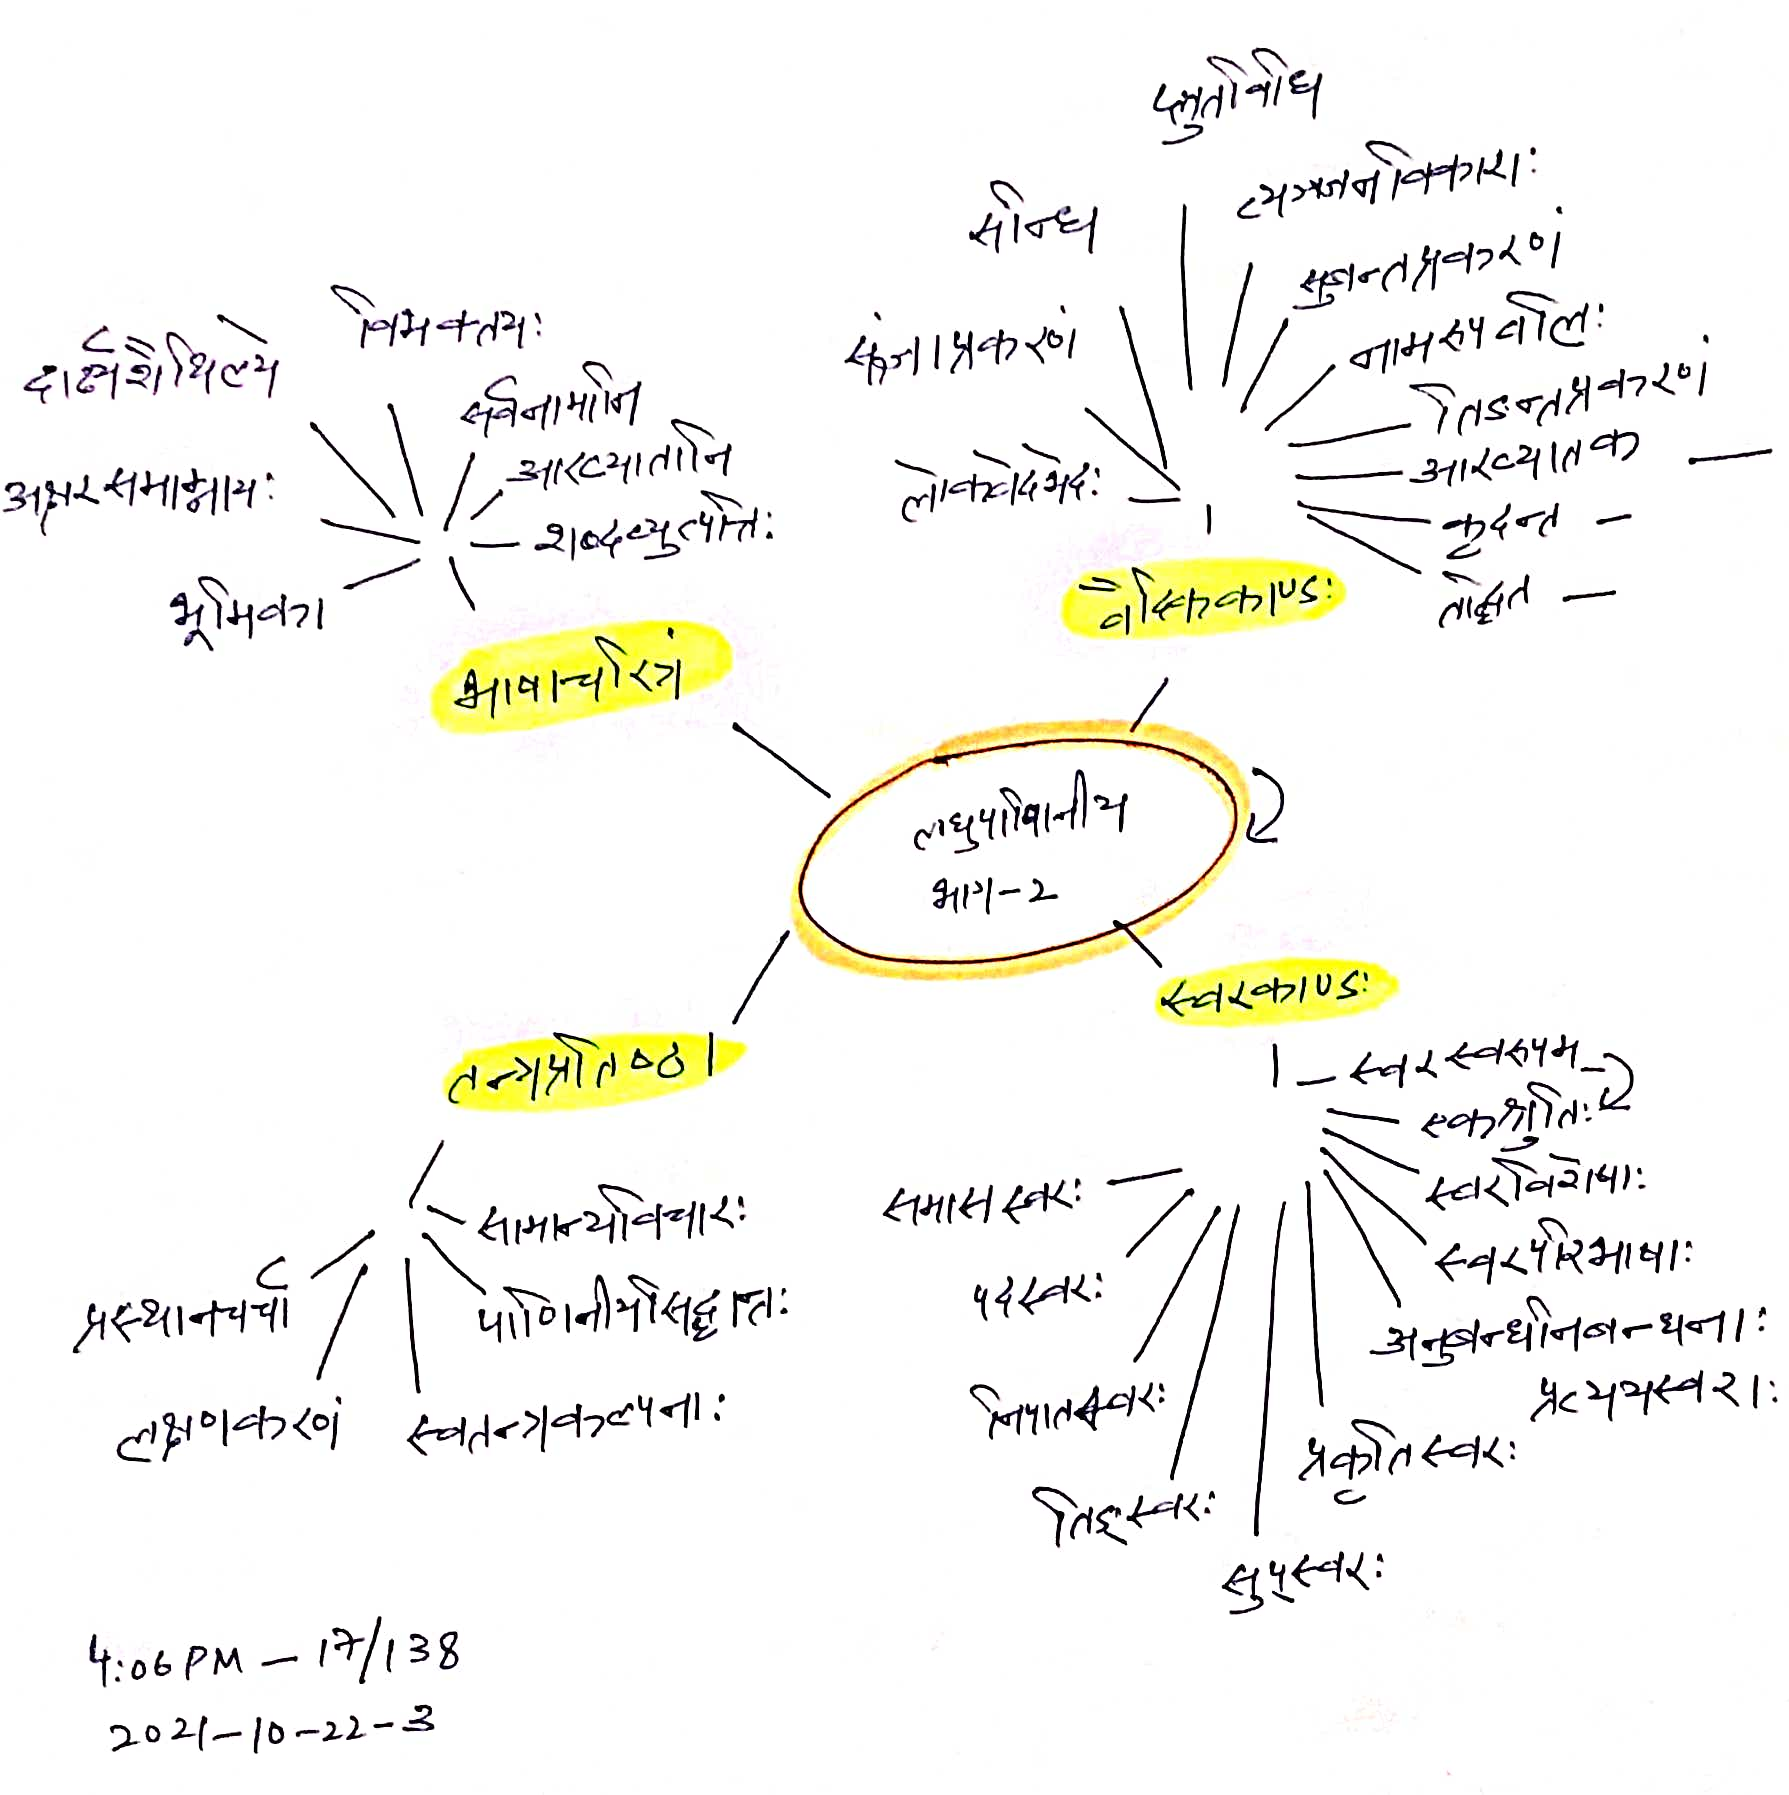 प्लुतिविधि
व्यञ्जनविकाराः
सन्धि
सुबन्तप्रकरणं
संज्ञाप्रकरणं
नामरूपवलिः
तिङन्तप्रकरणं
लोकवेदभेदः
आख्यातक —
कृदन्त —
तद्धित —
वैदिककाण्डः
विभक्तयः
दार्ढ्यशैथिल्ये
सर्वनामानि
आख्यातानि
अक्षरसमाम्नायः
शब्दव्युत्पत्तिः
भूमिका
भाषाचरित्रं
लघुपाणिनीय
भाग-२
स्वरकाण्डः
स्वरस्वरूपम्
एकश्रुतिः
स्वरविशेषाः
स्वरपरिभाषाः
अनुबन्धनिबन्धनाः
प्रत्ययस्वराः
प्रकृतिस्वरः
सुप्स्वरः
तिङ्स्वरः
निपातस्वरः
पदस्वरः
समासस्वरः
तन्त्रप्रतिष्ठा
सामान्यविचारः
पाणिनीयसिद्धान्तः
स्वतन्त्रकल्पनाः
लक्षणकरणं
प्रस्थानचर्चा
4:06 PM — 17/138
2021-10-22-3